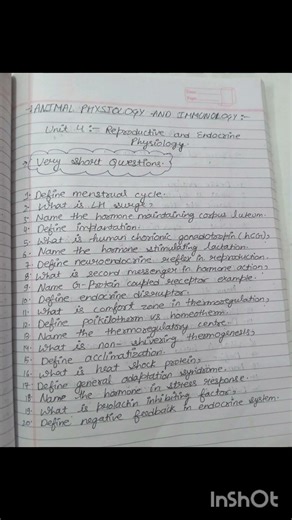 ANIMAL PHYSIOLOGY AND IMMUNOLOGY :-
Unit 4 :- Reproductive and Endocrine
Physiology
Very Short Questions.
1. Define menstrual cycle.
2. What is LH surge?
3. Name the hormone maintaining corpus luteum.
4. Define implantation.
5. What is human chorionic gonadotropin (hCG)?
6. Name the hormone stimulating lactation.
7. Define neuroendocrine reflex in reproduction.
8. What is second messenger in hormone action?
9. Name G-Protein coupled receptor example.
10. Define endocrine disruptor.
11. What is comfort zone in thermoregulation?
12. Define poikilotherm vs homeotherm.
13. Name the thermoregulatory centre.
14. What is non-shivering thermogenesis?
15. Define acclimatization.
16. What is heat shock protein?
17. Define general adaptation syndrome.
18. Name the hormone in stress response.
19. What is prolactin inhibiting factor?
20. Define negative feedback in endocrine system.
InShOt